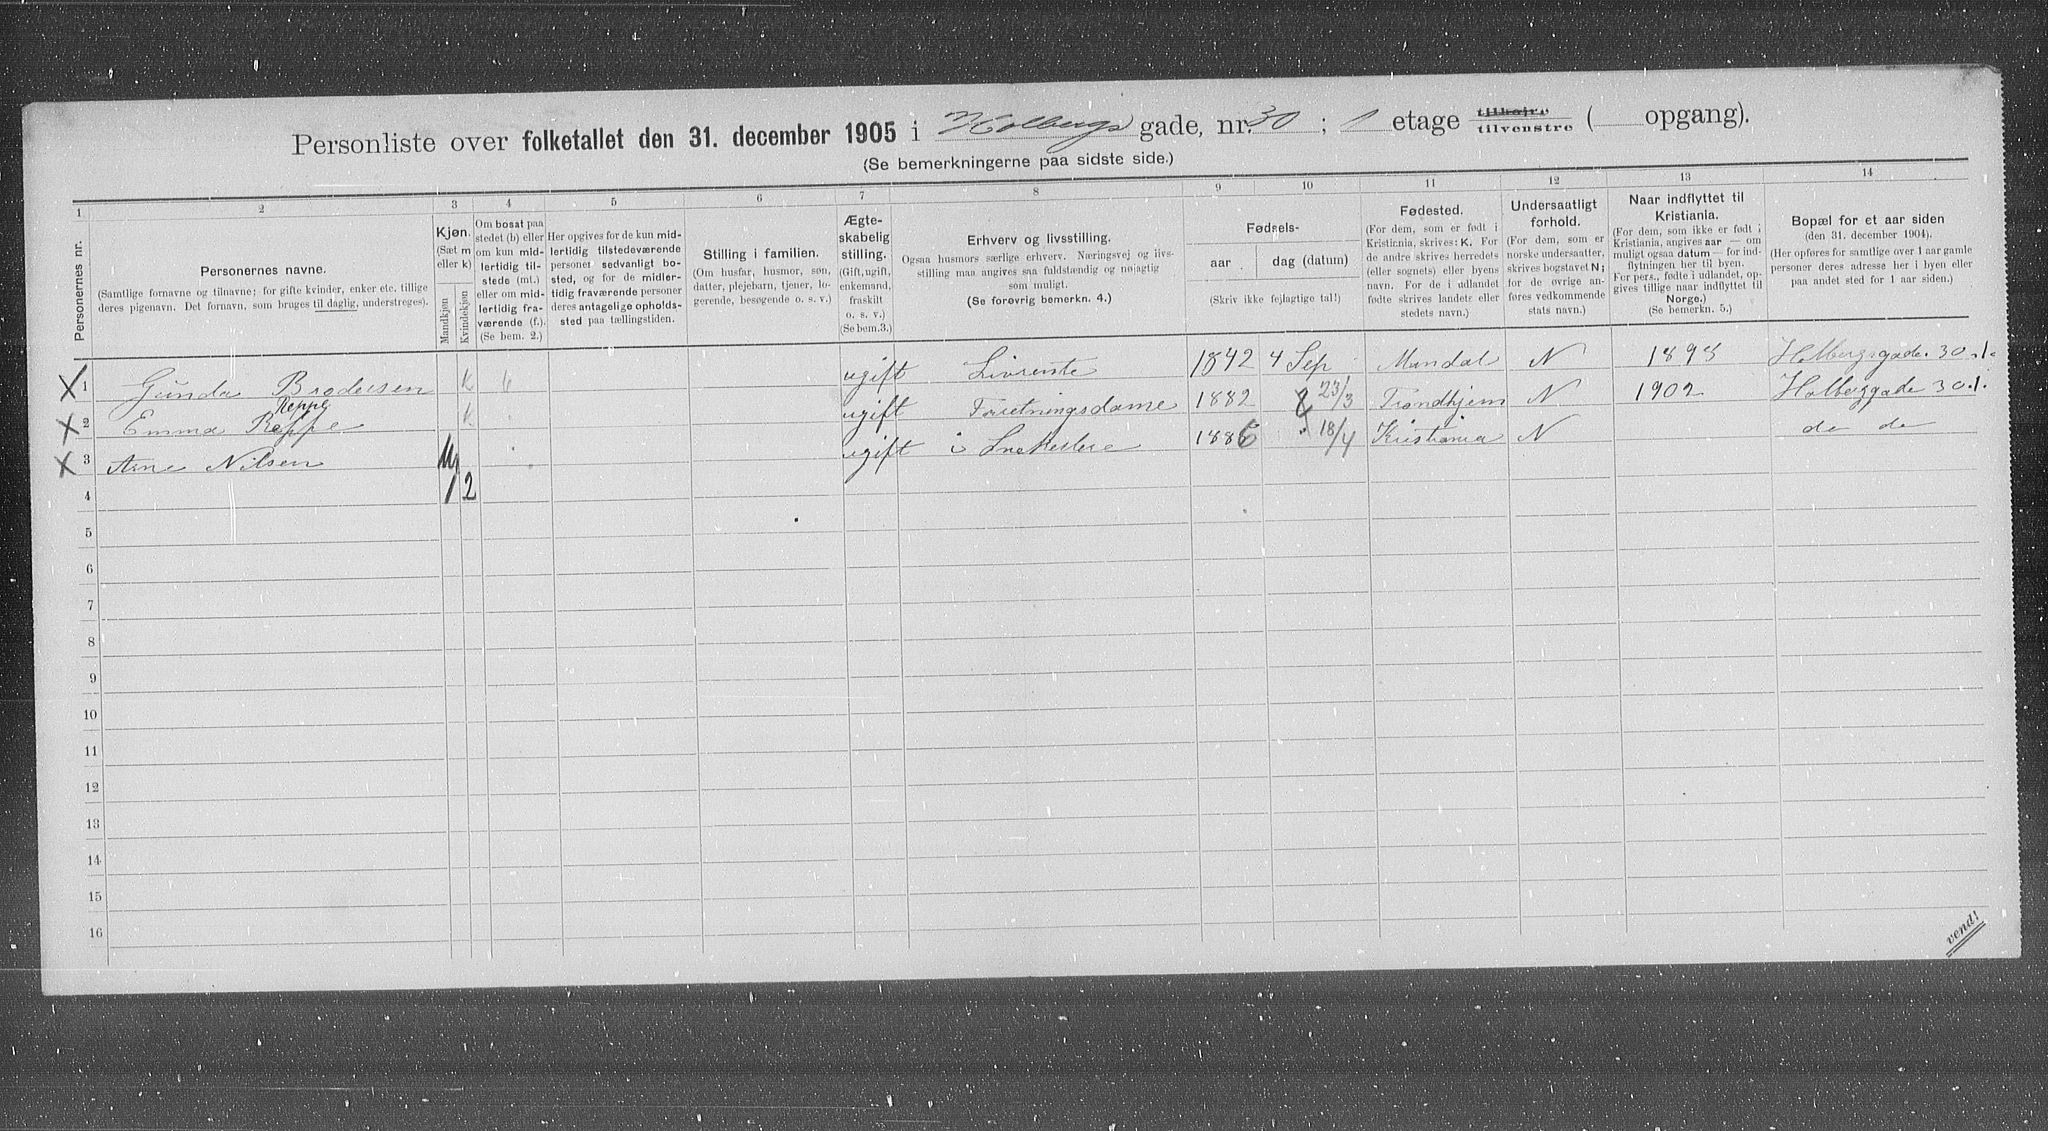 Personliste over folketallet den 31. december 1905 i Holbergs gade, nr. 30 ; 1 etage tilhøjre tilvenstre ( opgang).
(Se bemerkningerne paa sidste side.)
1 2 3 4 5 6 7 8 9 10 11 12 13 14
Personernes nr.
Personernes navne.
(Samtlige fornavne og tilnavne; for gifte kvinder, enker etc. tillige
deres pigenavn. Det fornavn, som bruges til daglig, understreges).
Kjøn.
(Sæt m
eller k)
Mandkjøn
Kvindekjøn
Om bosat paa
stedet (b) eller
om kun mid-
lertidig til-
stede (mt.)
eller om mid-
lertidig fra-
værende (f.).
(Se bem. 2.)
Her opgives for de kun mid-
lertidig tilstedeværende
personer sedvanligt bo-
sted, og for de midler-
tidig fraværende personer
deres antagelige opholds-
sted paa tællingstiden.
Stilling i familien.
(Om husfar, husmor, søn,
datter, plejebarn, tjener, lo-
gerende, besøgende o. s. v.)
Ægte-
skabelig
stilling.
(Gift, ugift,
enkemand,
fraskilt
o. s. v.)
(Se bem.3.)
Erhverv og livsstilling.
Ogsaa husmors særlige erhverv. Næringsvej og livs-
stilling maa angives saa fuldstændig og nøjagtig
som muligt.
(Se forøvrig bemerkn. 4.)
Fødsels-
aar
dag (datum)
(Skriv ikke fejlagtige tal!)
Fødested.
(For dem, som er født i
Kristiania, skrives: K. For
de andre skrives herredets
(eller sognets) eller byens
navn. For de i udlandet
fødte skrives landets eller
stedets navn.)
Undersaatligt
forhold.
(For dem, som er
norske undersaatter,
skrives bogstavet N;
for de øvrige an-
føres vedkommende
stats navn.)
Naar indflyttet til
Kristiania.
(For dem, som ikke er født i
Kristiania, angives aar — om
muligt ogsaa datum — for ind-
flytningen her til byen.
For pers., fødte i udlandet, op-
gives tillige naar indflyttet til
Norge.)
(Se bemerkn. 5.)
Bopæl for et aar siden
(den 31. december 1904).
(Her opføres for samtlige over 1 aar gamle
personer deres adresse her i byen eller
paa andet sted for 1 aar siden.)
X 1 Gunda Brodersen k b ugift Livrente 1842 4 Sep Mandal N 1898 Holbergsgade 30.1.
Reppe
X 2 Emma Reppe k ugift Foretningsdame 1882 23/3 Trondhjem N 1902 Holbergsgade 30.1.
X 3 Arne Nilsen M ugift i 1886 18/4 Kristiania N do do
4 1 2
5
6
7
8
9
10
11
12
13
14
15
16
vend!